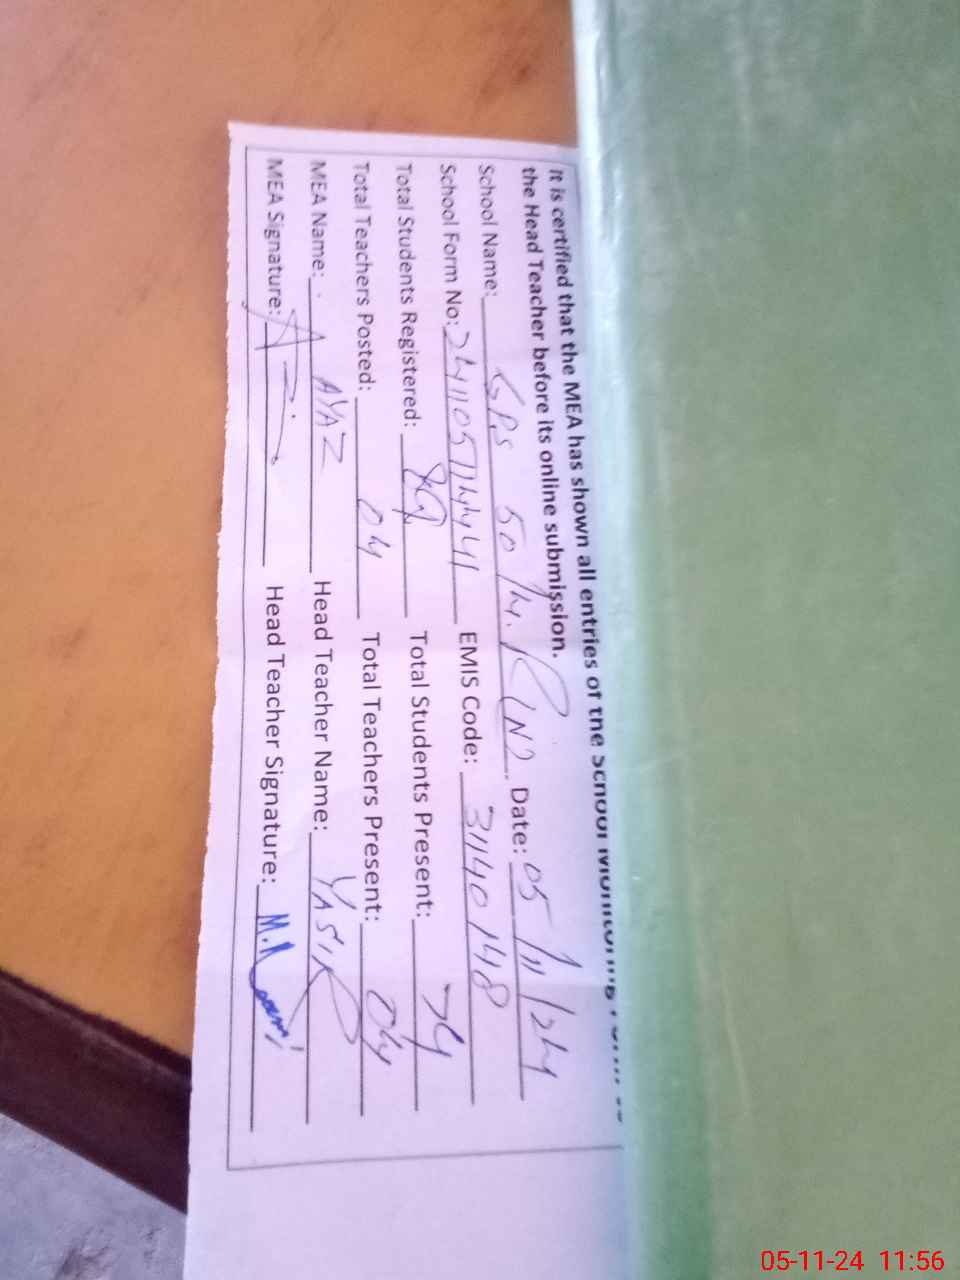 It is certified that the MEA has shown all entries of the School Monitoring Form to
the Head Teacher before its online submission.
School Name: GPS 50/4.R(N) Date: 05/11/24
School Form No: EMIS Code: 31140148
Total Students Registered: 89 Total Students Present: 74
Total Teachers Posted: 04 Total Teachers Present: 04
MEA Name: AYAZ Head Teacher Name: YASIR
MEA Signature: Head Teacher Signature:
05-11-24 11:56